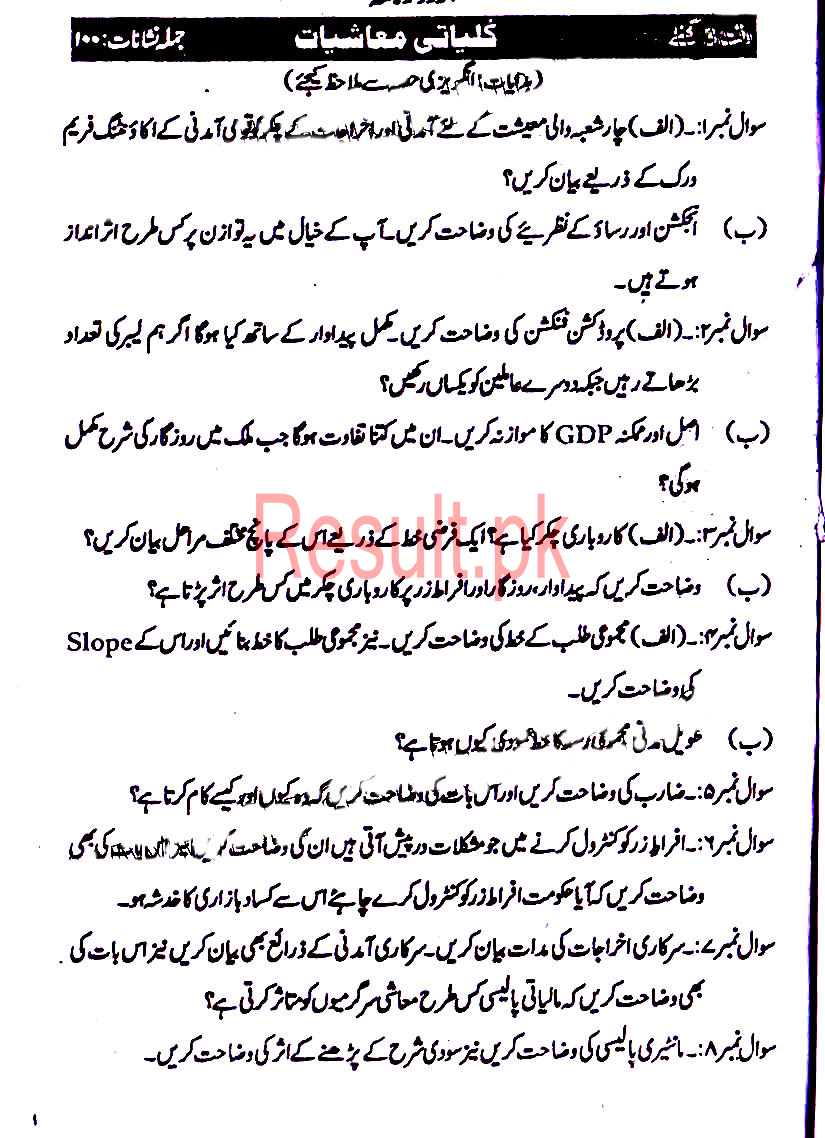 وقت: ۳ گھنٹے کلیاتی معاشیات جملہ نشانات: ۱۰۰
(ہدایات: انگریزی حصہ سے ملاحظہ کیجئے)
سوال نمبر۱:۔ (الف) چار شعبہ والی معیشت کے لئے آمدنی اور اخراجات کے چکر کو قومی آمدنی کے اکاؤنٹنگ فریم
ورک کے ذریعے بیان کریں؟
(ب) انجکشن اور رساؤ کے نظریئے کی وضاحت کریں۔ آپ کے خیال میں یہ توازن پر کس طرح اثر انداز
ہوتے ہیں۔
سوال نمبر۲:۔ (الف) پروڈکشن فنکشن کی وضاحت کریں۔ مکمل پیداوار کے ساتھ کیا ہوگا اگر ہم لیبر کی تعداد
بڑھاتے رہیں جبکہ دوسرے عاملین کو یکساں رکھیں؟
(ب) اصل اور ممکنہ GDP کا موازنہ کریں۔ ان میں کتنا تفاوت ہوگا جب ملک میں روزگار کی شرح مکمل
ہوگی؟
Result.pk
سوال نمبر۳:۔ (الف) کاروباری چکر کیا ہے؟ ایک فرضی خط کے ذریعے اس کے پانچ مختلف مراحل بیان کریں؟
(ب) وضاحت کریں کہ پیداوار، روزگار اور افراط زر پر کاروباری چکر میں کس طرح اثر پڑتا ہے؟
سوال نمبر۴:۔ (الف) مجموعی طلب کے خط کی وضاحت کریں۔ نیز مجموعی طلب کا خط بنائیں اور اس کے Slope
کی وضاحت کریں۔
(ب) طویل مدتی مجموعی رسد کا خط عمودی کیوں ہوتا ہے؟
سوال نمبر۵:۔ ضارب کی وضاحت کریں اور اس بات کی وضاحت کریں کہ وہ کیوں اور کیسے کام کرتا ہے؟
سوال نمبر۶:۔ افراط زر کو کنٹرول کرنے میں جو مشکلات درپیش آتی ہیں ان کی وضاحت کریں نیز اس بات کی بھی
وضاحت کریں کہ آیا حکومت افراط زر کو کنٹرول کرے چاہئے اس سے کساد بازاری کا خدشہ ہو۔
سوال نمبر۷:۔ سرکاری اخراجات کی مدات بیان کریں۔ سرکاری آمدنی کے ذرائع بھی بیان کریں نیز اس بات کی
بھی وضاحت کریں کہ مالیاتی پالیسی کس طرح معاشی سرگرمیوں کو متاثر کرتی ہے؟
سوال نمبر۸:۔ مانٹیری پالیسی کی وضاحت کریں نیز سودی شرح کے بڑھنے کے اثر کی وضاحت کریں۔